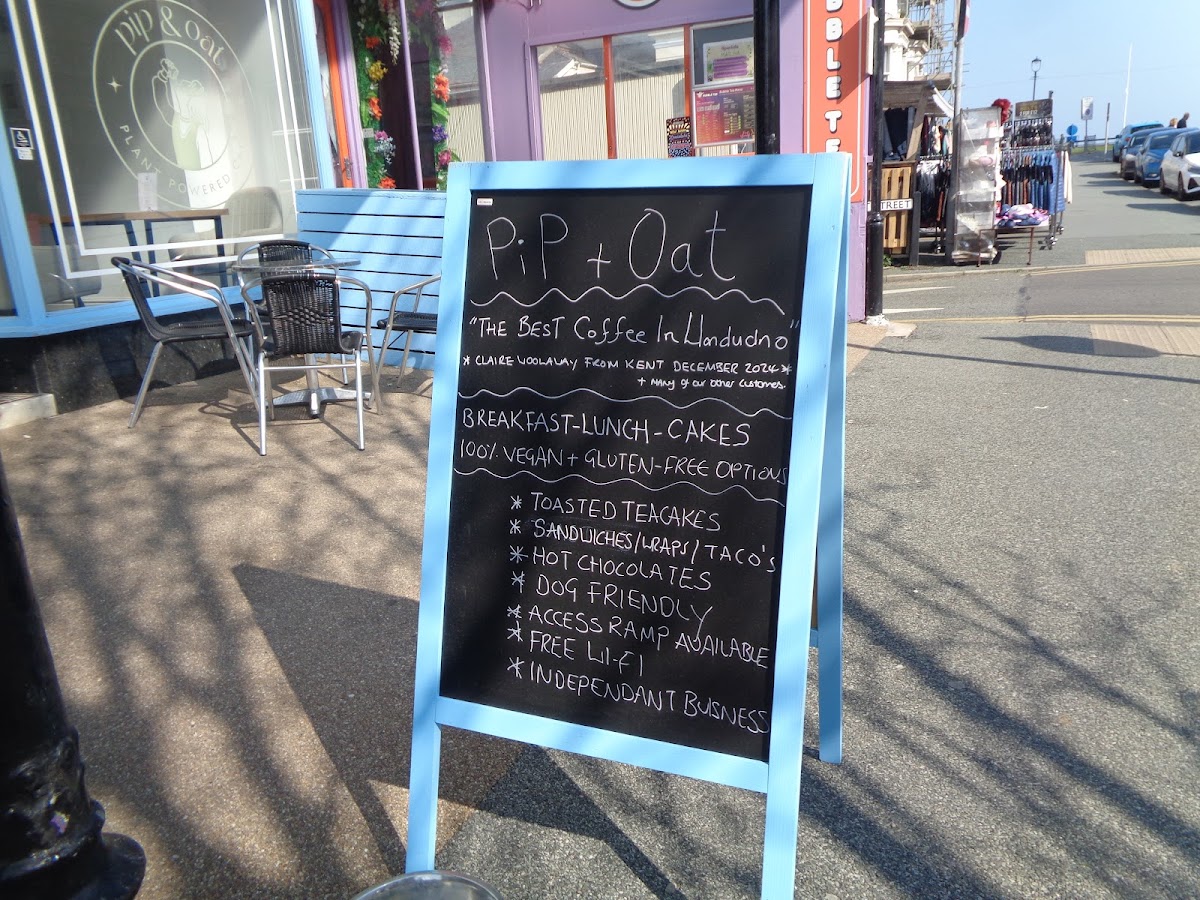 pip & oat
PLANT POWERED
BBLE TE
STREET
PiP + Oat
"THE BEST Coffee In Llandudno"
* CLAIRE WOOLAWAY FROM KENT DECEMBER 2024 *
+ MANY of our other customers.
BREAKFAST-LUNCH-CAKES
100% VEGAN + GLUTEN-FREE OPTIONS
* TOASTED TEACAKES
* SANDWICHES/WRAPS/TACO'S
* HOT CHOCOLATES
* DOG FRIENDLY
* ACCESS RAMP AVAILABLE
* FREE WI-FI
* INDEPENDANT BUISNESS